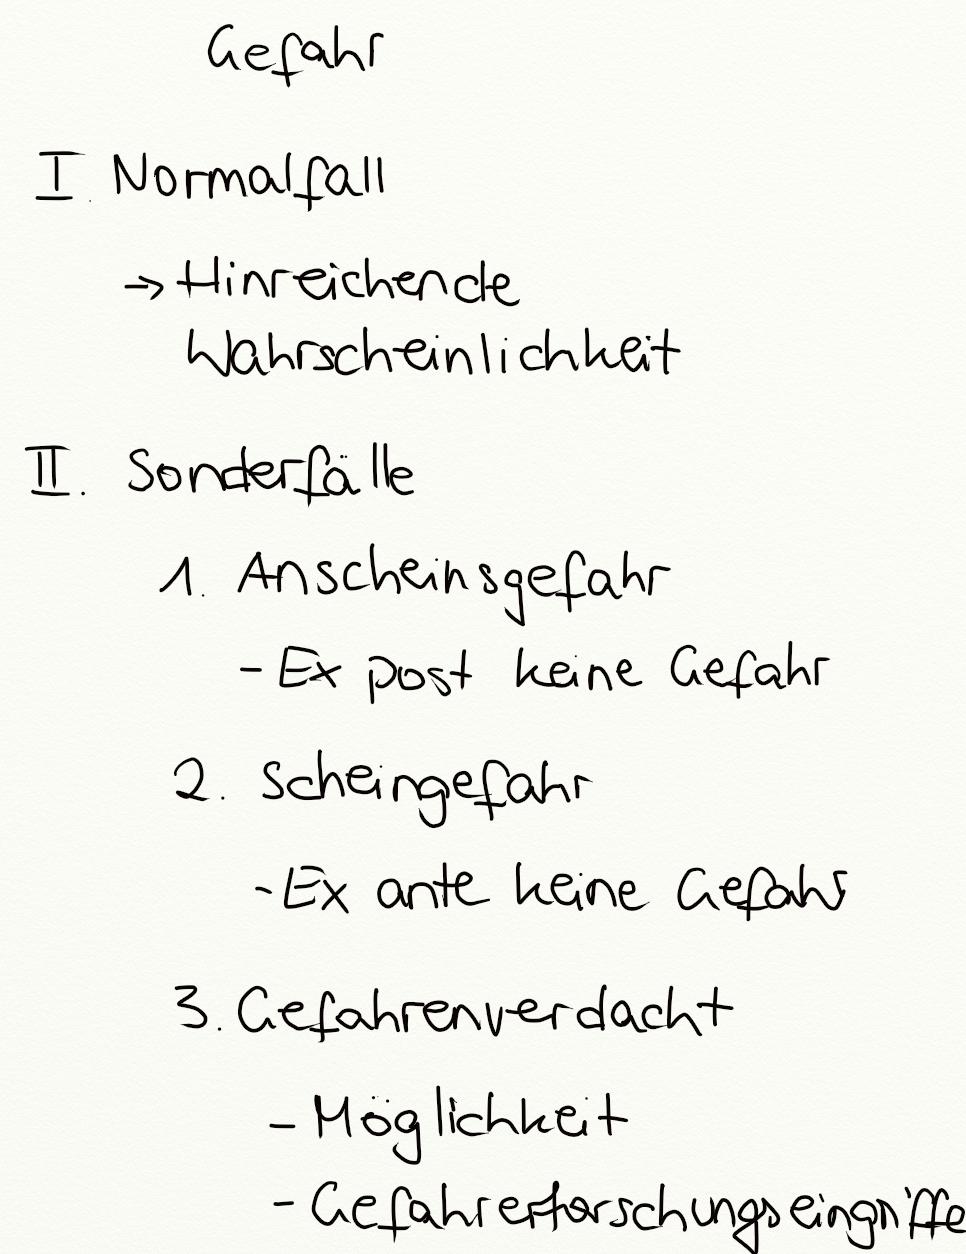 Gefahr
I. Normalfall
→ Hinreichende
Wahrscheinlichkeit
II. Sonderfälle
1. Anscheinsgefahr
- Ex post keine Gefahr
2. Scheingefahr
- Ex ante keine Gefahr
3. Gefahrenverdacht
- Möglichkeit
- Gefahrerforschungseingriffe